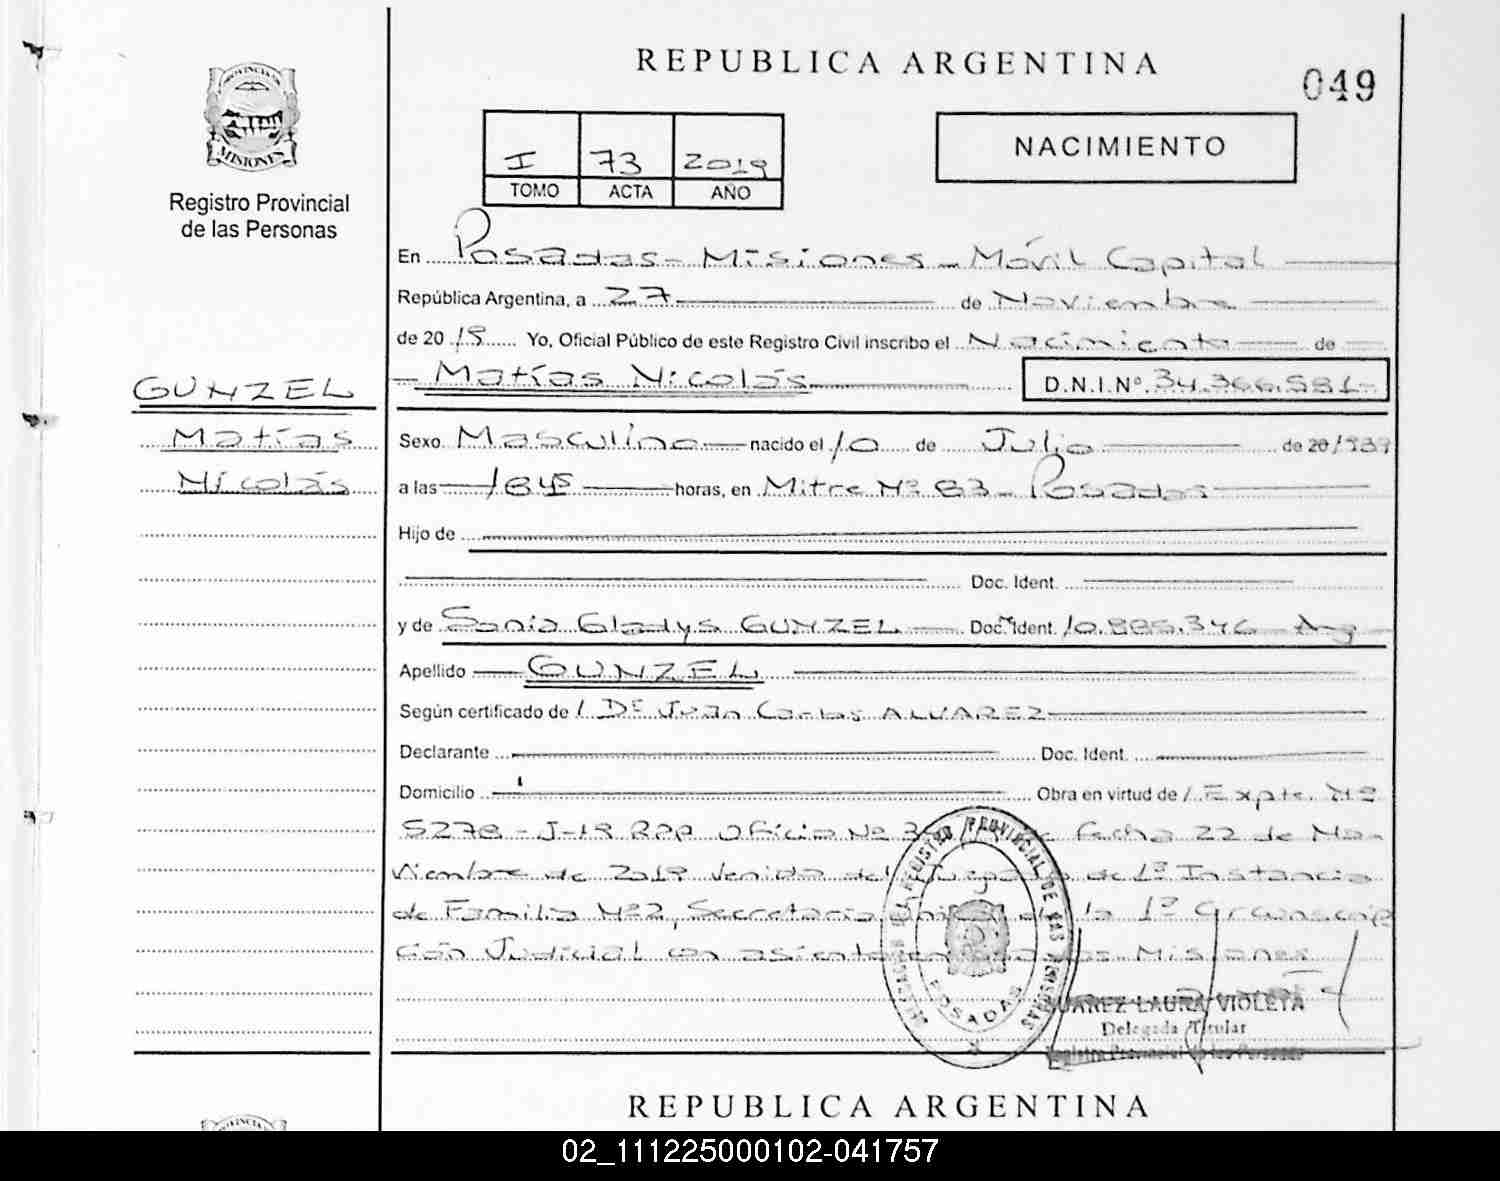 REPUBLICA ARGENTINA
049
PROVINCIA DE
MISIONES
Registro Provincial
de las Personas
I 73 2019
TOMO ACTA AÑO
NACIMIENTO
En Posadas - Misiones - Móvil Capital
República Argentina, a 27 de Noviembre
de 2019 Yo, Oficial Público de este Registro Civil inscribo el Nacimiento de
Matías Nicolás D.N.I.Nº. 34.366.581-
GUNZEL
Matías
Nicolás
Sexo Masculino nacido el 10 de Julio de 20/1989
a las 1845 horas, en Mitre Nº 83 - Posadas
Hijo de
Doc. Ident.
y de Sonia Gladys GUNZEL Doc. Ident. 10.885.346 Arg
Apellido GUNZEL
Según certificado de / Dr Juan Carlos ALVAREZ
Declarante Doc. Ident.
Domicilio Obra en virtud de / Expte. Nº
5278 - J-19 RPP Oficio Nº fecha 22 de No-
viembre de 2019 venido del Juzgado de 1º Instancia
de Familia Nº2, Secretaria de la 1º Circunscrip
ción Judicial con asiento Misiones
REGISTRO PROVINCIAL DE LAS PERSONAS
POSADAS
SUAREZ LAURA VIOLETA
Delegada Titular
Registro Provincial de las Personas
REPUBLICA ARGENTINA
02_111225000102-041757